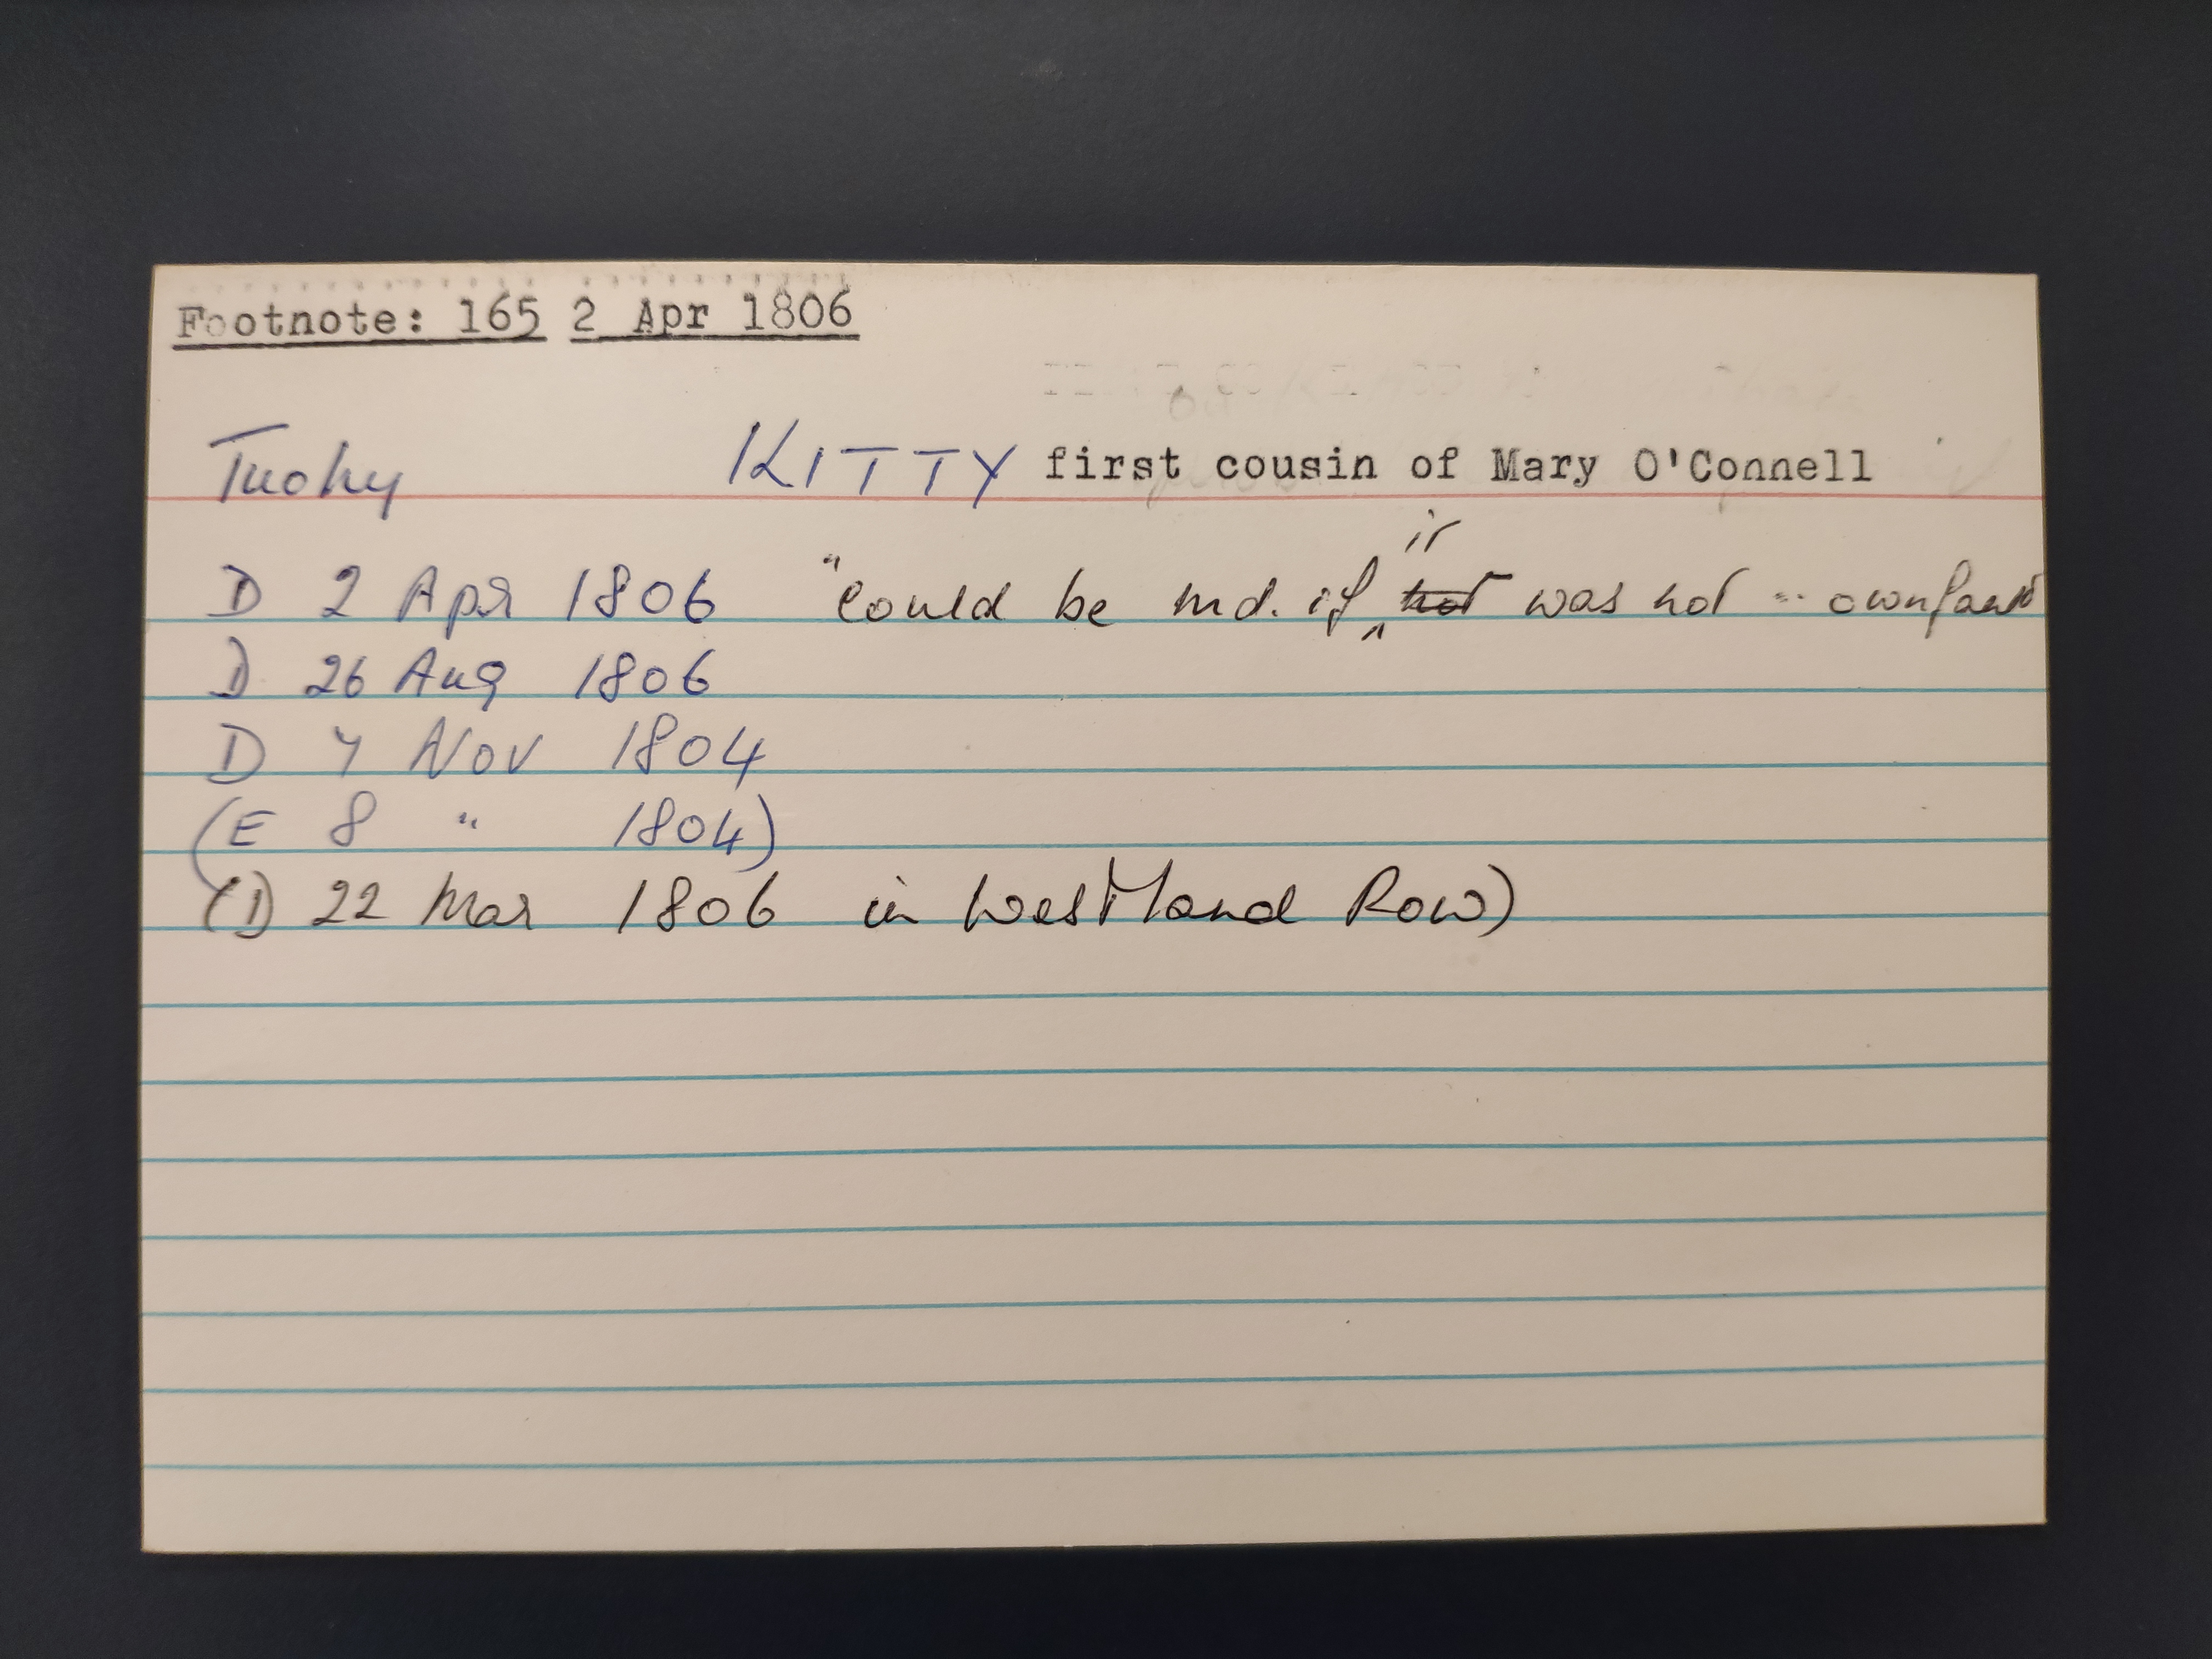 Footnote: 165 2 Apr 1806
Tuohy KITTY first cousin of Mary O'Connell
it
D 2 Apr 1806 "Could be md. if ‸ not was not -- own fault
D 26 Aug 1806
D 7 Nov 1804
(E 8 " 1804)
(D 22 Mar 1806 in Westland Row)